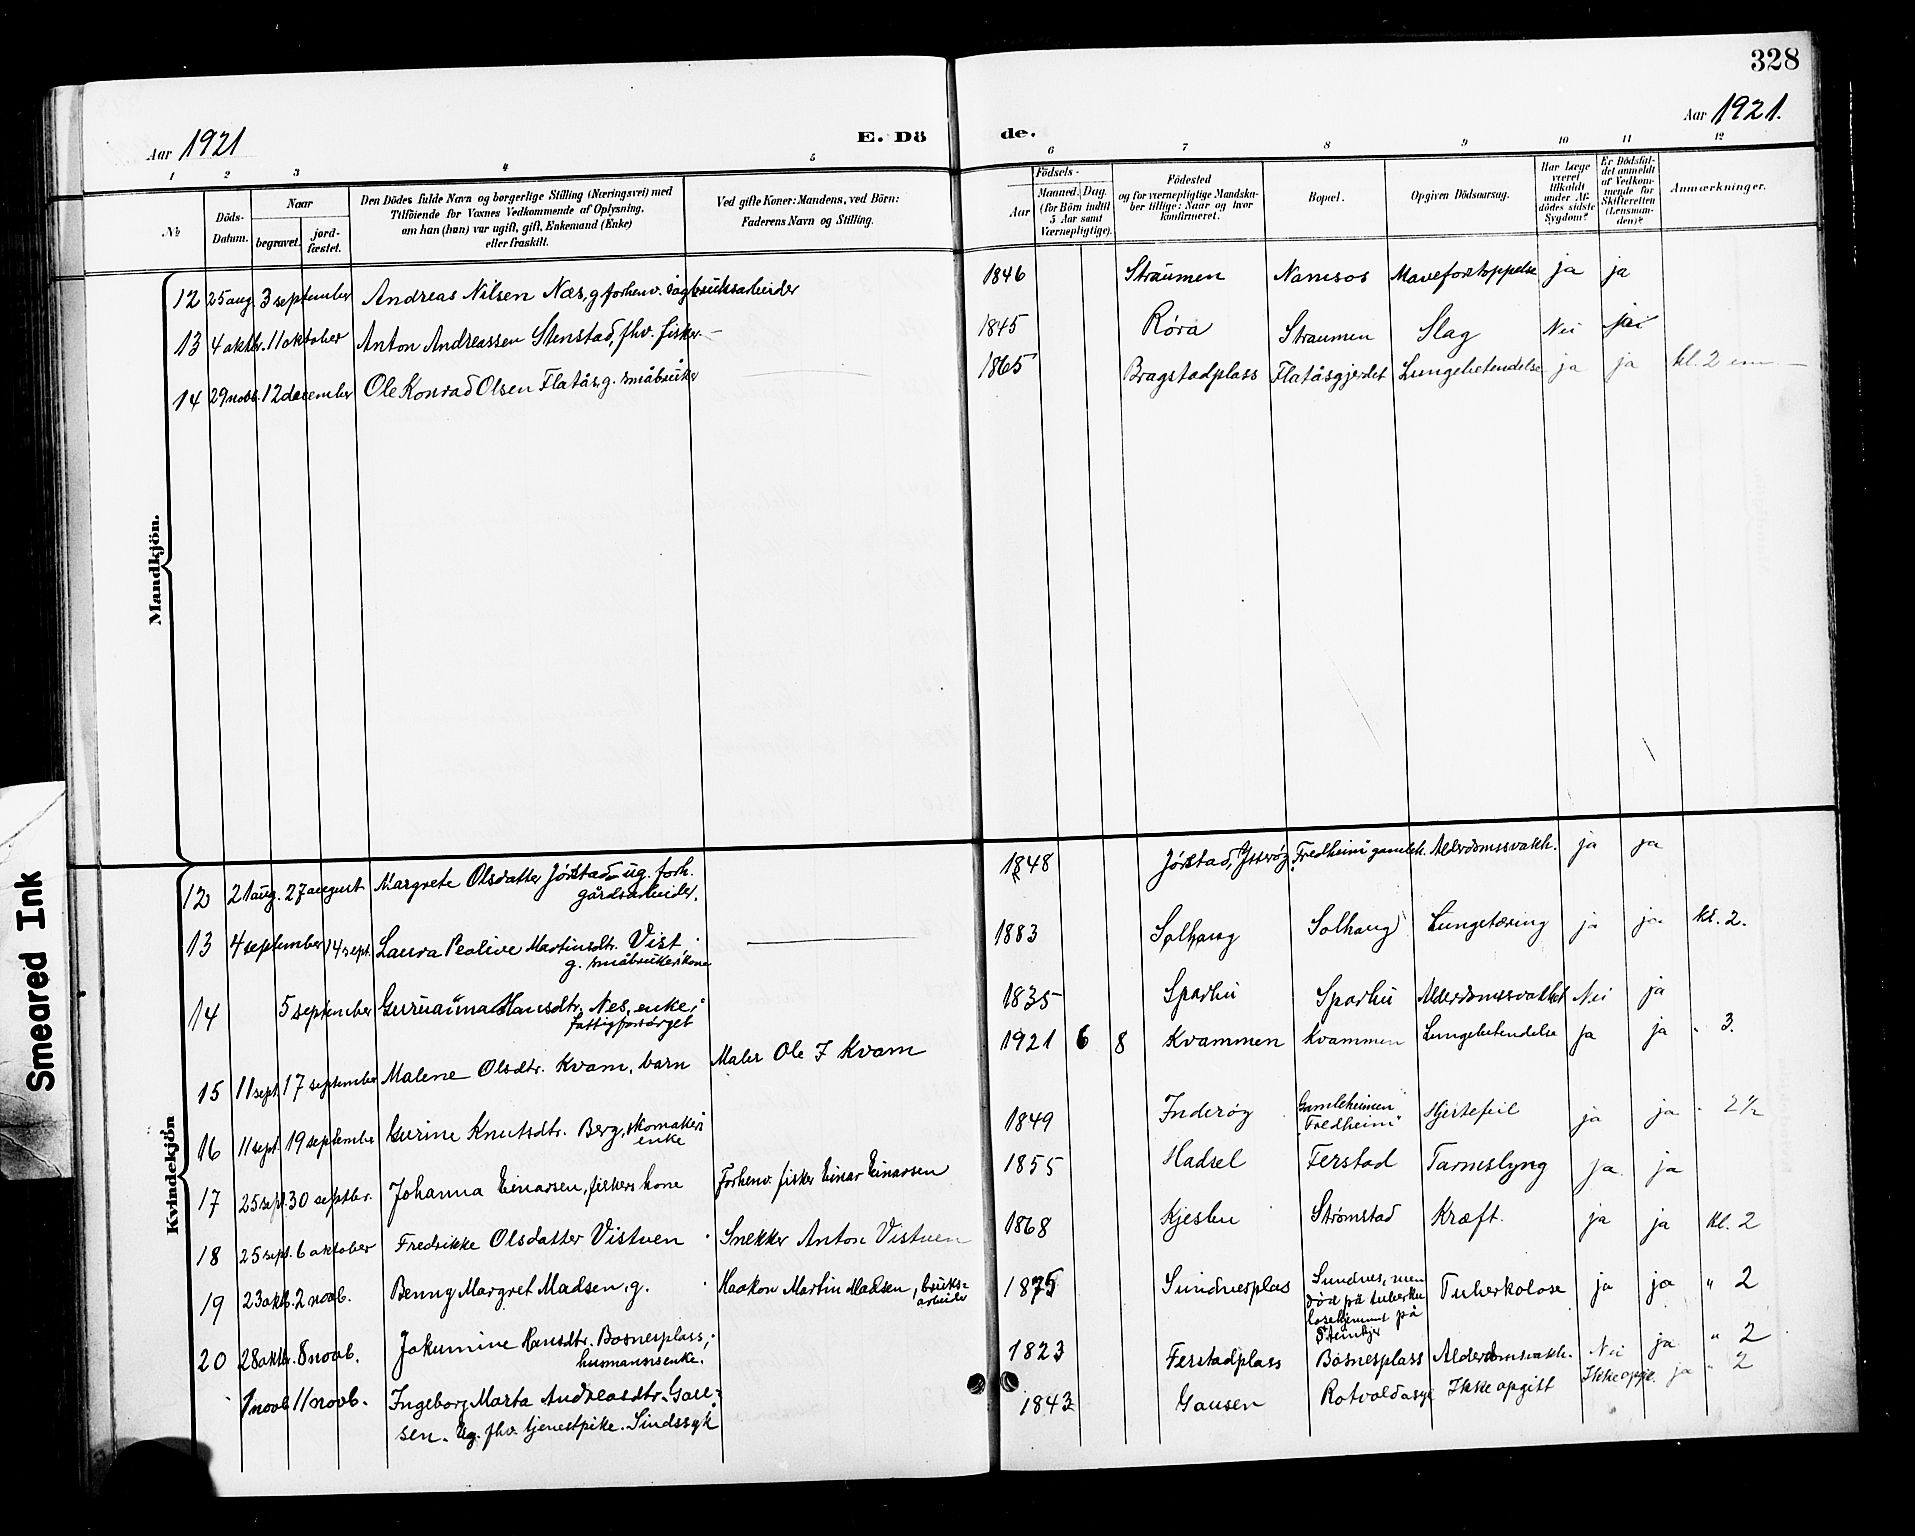 328
Aar 1921
E. Dö
de.
Aar 1921.
1 2 3 4 5 6 7 8 9 10 11 12
No
Döds-Datum.
Naar
begravet.
jord-fæstet.
Den Dödes fulde Navn og borgerlige Stilling (Næringsvei) med
Tilföiende for Voxnes Vedkommende af Oplysning,
om han (hun) var ugift, gift, Enkemand (Enke)
eller fraskilt.
Ved gifte Koner: Mandens, ved Börn:
Faderens Navn og Stilling.
Födsels-
Aar
Maaned. Dag.
(for Börn indtil
5 Aar samt
Værnepligtige).
Födested
og for værnepligtige Mandska-
ber tillige: Naar og hvor
konfirmeret.
Bopæl.
Opgiven Dödsaarsag.
Har Læge
været
tilkaldt
under Af-
dødes sidste
Sygdom?
Er Dödsfal-
det anmeldt
af Vedkom-
mende for
Skifteretten
(Lensman-
den)?
Anmærkninger.
Mandkjön.
12 25 aug. 3 september Andreas Nilsen Næs, g. forhenv. sagbruksarbeider 1846 Straumen Namsos Maveforstoppelse ja ja
13 4 oktbr. 11 oktober Anton Andreassen Stenstad, fhv. fisker 1845 Røra Straumen Slag Nei ja
14 29 novb. 12 december Ole Konrad Olsen Flatås, g. småbruker 1865 Bragstadplass Flatåsgjerdet Lungebetendelse ja ja kl. 2 em
Kvindekjön
12 21 aug. 27 august Margrete Olsdatter Jørstad ug. forh.
gårdsarbeider. 1848 Jørstad, Ytterøy Fredheim gamleh. Alderdomssvakh. ja ja
13 4 september 14 sept. Laura Peolive Martinsdtr. Vist,
g. småbrukerskone 1883 Solhaug Solhaug Lungetæring ja ja kl. 2.
14 5 september Guruanna Hansdtr. Nes, enke;
fattigforsørget 1835 Sparbu Sparbu Alderdomssvakhet Nei ja
15 11 sept. 17 september Malene Olsdtr. Kvam, barn Maler Ole J Kvam 1921 6 8 Kvammen Kvammen Lungebetendelse ja ja " 3.
16 11 sept. 19 september Gurine Knutsdtr. Berg, skomaker
enke 1849 Inderøy Gamleheimen
"Fredheim" Hjertefeil ja ja " 2½
17 25 sept. 30 septbr. Johanna Einarsen, fiskers kone Forhenv. fisker Einar Einarsen 1855 Hadsel Ferstad Tarmslyng ja ja
18 25 sept. 6 oktober Fredrikke Olsdatter Vistven Snekker Anton Vistven 1868 Strømstad Kræft. ja ja kl. 2
19 23 oktb. 2 novb. Benny Margret Madsen, g. Haakon Martin Madsen, bruks-
arbeider 1875 Sundnesplass Sundnes, men
død på tuberku
losehjemmet på
Steinkjer Tuberkolose ja ja " 2
20 28 oktbr. 8 novb. Jakumine Hansdtr. Bosnesplass;
husmannsenke. 1823 Ferstadplass Bosnesplass Alderdomsvakh. Nei ja " 2
1 novb. 11 novb. Ingeborg Marta Andreasdtr. Gau-
sen. Ug. fhv. tjenestpike. Sindssyk 1843 Gausen Rotvoldasyl Ikke opgitt Ikke opgit. ja " 2
Smeared Ink